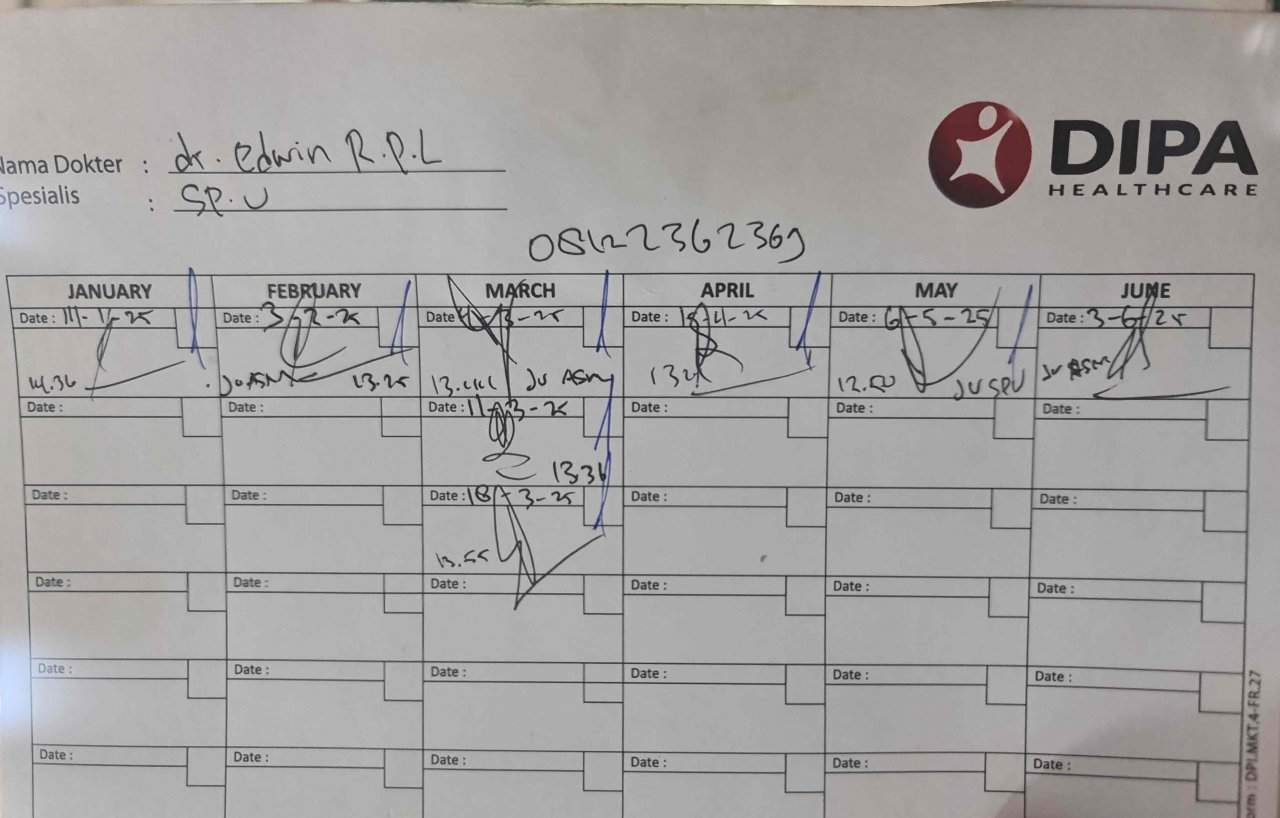 DIPA
HEALTHCARE
Nama Dokter : dr. Edwin R.P.L
Spesialis : SP.U
JANUARY FEBRUARY MARCH APRIL MAY JUNE
Date : 14-1-25 Date : 3-2-25 Date : 3-25 Date : Date : 6-5-25 Date : 3-6-25
14.36 JV ASM 13.25 JV ASM JV SPV JV ASM
Date : Date : Date : 11-3-25 Date : Date : Date :
13.36
Date : Date : Date : 18-3-25 Date : Date : Date :
13.55
Date : Date : Date : Date : Date : Date :
Date : Date : Date : Date : Date : Date :
Date : Date : Date : Date : Date : Date :
orm : DPI.MKT.4-FR.27